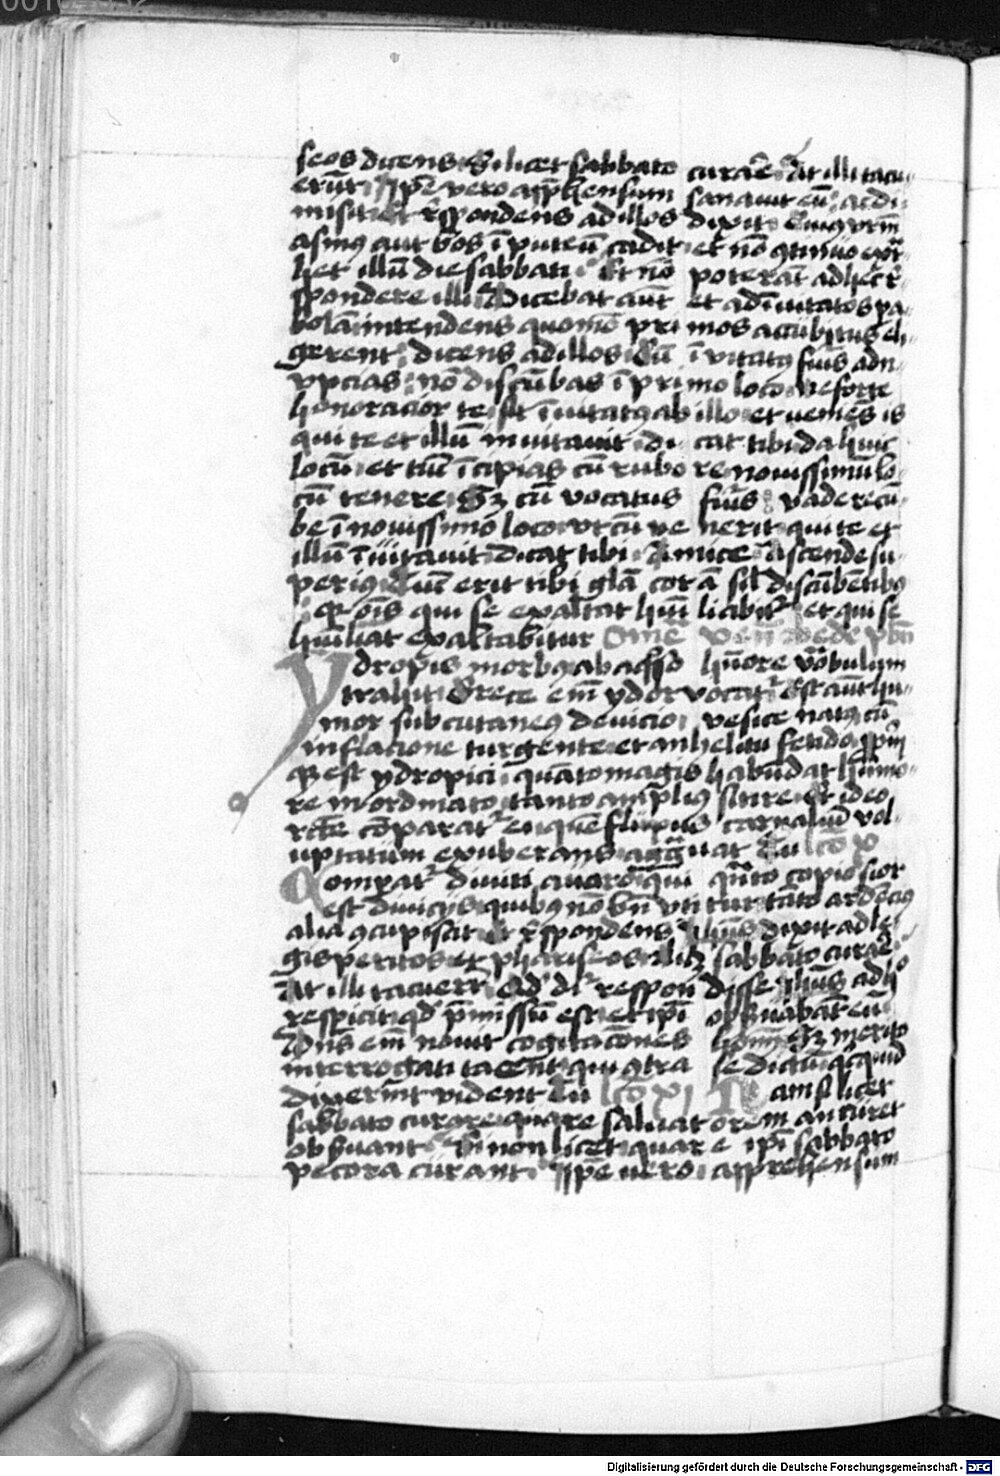 seos dicens Si licet sabbato curare At illi tacu
erūt Ipē vero app̄hensum sanauit eū ac di
misit Et rn̄spondens ad illos dixit Cuius vrm̄
asinus aut bos ī puteū cadit et nō ꝯtinuo extr̄
het illū die sabbati Et nō poterāt ad hec r̄
spondere illi Dicebat aūt et ad īuitatos pa
bolā intendens quomō primos accubitus eli
gerent dicens ad illos Cū īvitatus fueris ad n
vpcias nō discūbas ī primo loco ne forte
honoracior te sit īuitatus ab illo et veniēs is
qui te et illū inuitauit dicat tibi da huic
locū et tūc īcipias cū rubore nouissimū lo
cū tenere Sꝫ cū vocatus fueris vade recū
be ī nouissimo loco vt cū venerit qui te et
illū īuitauit dicat tibi Amice ascende su
perius Tunc erit tibi glā corā sil̄ discūbētibꝰ
qꝛ oīs qui se exaltat hūiliabitr̄ et qui se
hūiliat exaltabitur Omē ven̄ bede pbrī
Ydropis morbus ab aquoso hūore vocabulum
trahit Grece em̄ ydor vocatr̄ Est aūt hu
mor subcutaneus de vicio vesice natus cū
inflacione turgente et anhelitu fetido ꝓpriū
qꝫ est ydropici quanto magis habūdat hūmo
re inordinato tanto amplius sitire Et ideo
recte cōparatr̄ ei quē fluxus carnaliū vol
uptatum exuberans aggrauat Tu lcō x
Comparatr̄ diuiti auaro qui quāto copiosior
est diuicijs quibus nō bn̄ vtitur tāto ardēcius
alia ꝯcupiscit Et rn̄spondens Ihūs dixit ad le
gis peritos et phariseos si licꝫ sabbato curare
At illi tacuerūt Qd̄ dr̄ respondisse Ihūs ad hoc
respicit qd̄ p̄missū est et ipī obseruabāt eū
Dn̄s em̄ nouit cogitacōnes hoīm Sꝫ merito
interrogati tacent qui ꝯtra se dictū quicquid
dixerint vident Tu lcō xi Nam si licet
sabbato curare quare saluatorem an curet
obseruant Si non licet quare ipī sabbato
pecora curant Ipē vero apprehensum